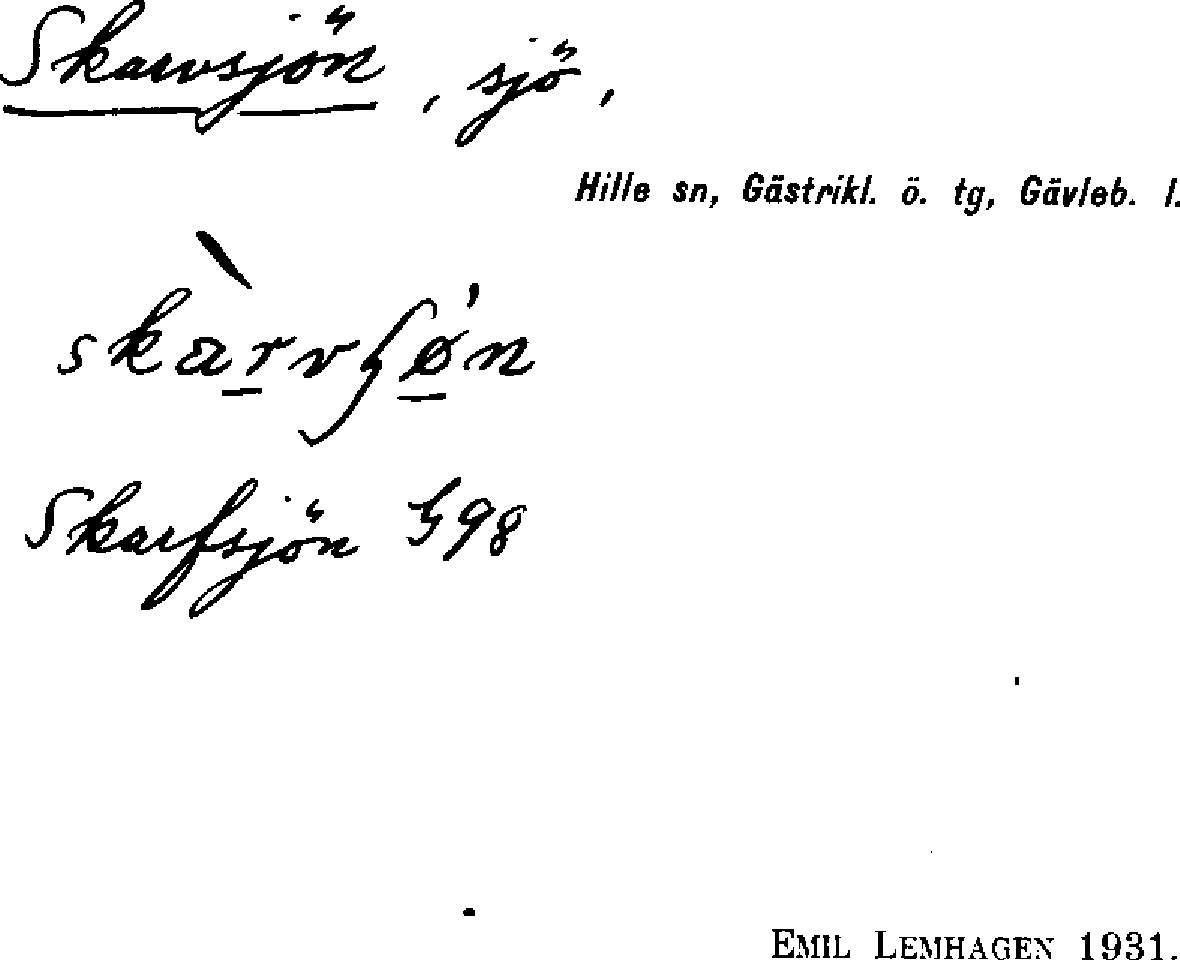 Skarvsjön, sjö,
Hille sn, Gästrikl. ö. tg, Gävleb. l.
skàrvʃǿn
Skarfsjön G98
EMIL LEMHAGEN 1931.